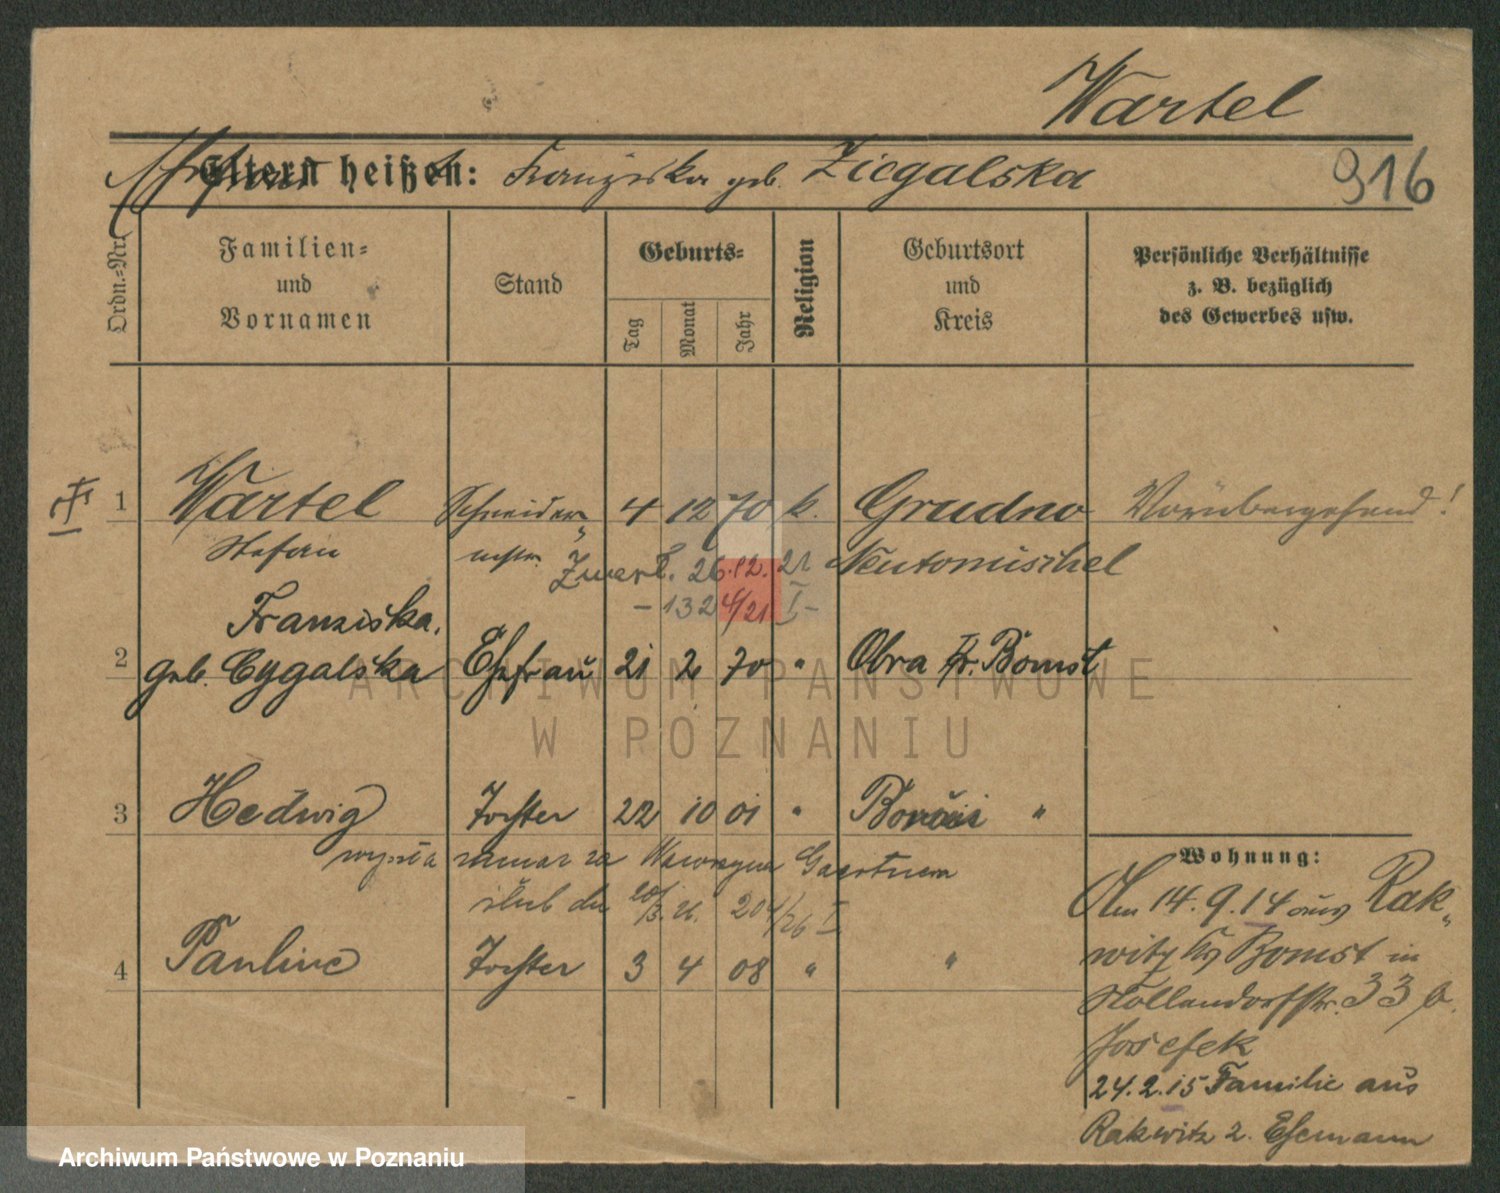 Wartel
Eltern heißen: Franziska geb. Ziegalska
916
Ordn.-Nr.
Familien-
und
Vornamen
Stand
Geburts-
Tag
Monat
Jahr
Religion
Geburtsort
und
Kreis
Persönliche Verhältnisse
z. B. bezüglich
des Gewerbes usw.
1 Wartel Schneider- 4 12 70 k. Grudno Vorübergehend!
Stefan mstr. Neutomischel
Zmarł. 26.12.21
- 1324/21 I -
Franziska,
2 geb. Cygalska Ehefrau 21 2 70 " Obra Kr. Bomst
3 Hedwig Tochter 22 10 01 " "
wyszła za Wawrzyna
ślub dn 20/3.26. 204/26 I
4 Pauline Tochter 3 4 08 " "
Wohnung:
Am 14.9.14 aus Rak-
witz Kr Bomst in
Hollandorfstr. 33 b.
Josefek
24.2.15 Familie aus
Rakwitz z. Ehemann
ARCHIWUM PAŃSTWOWE
W POZNANIU
Archiwum Państwowe w Poznaniu